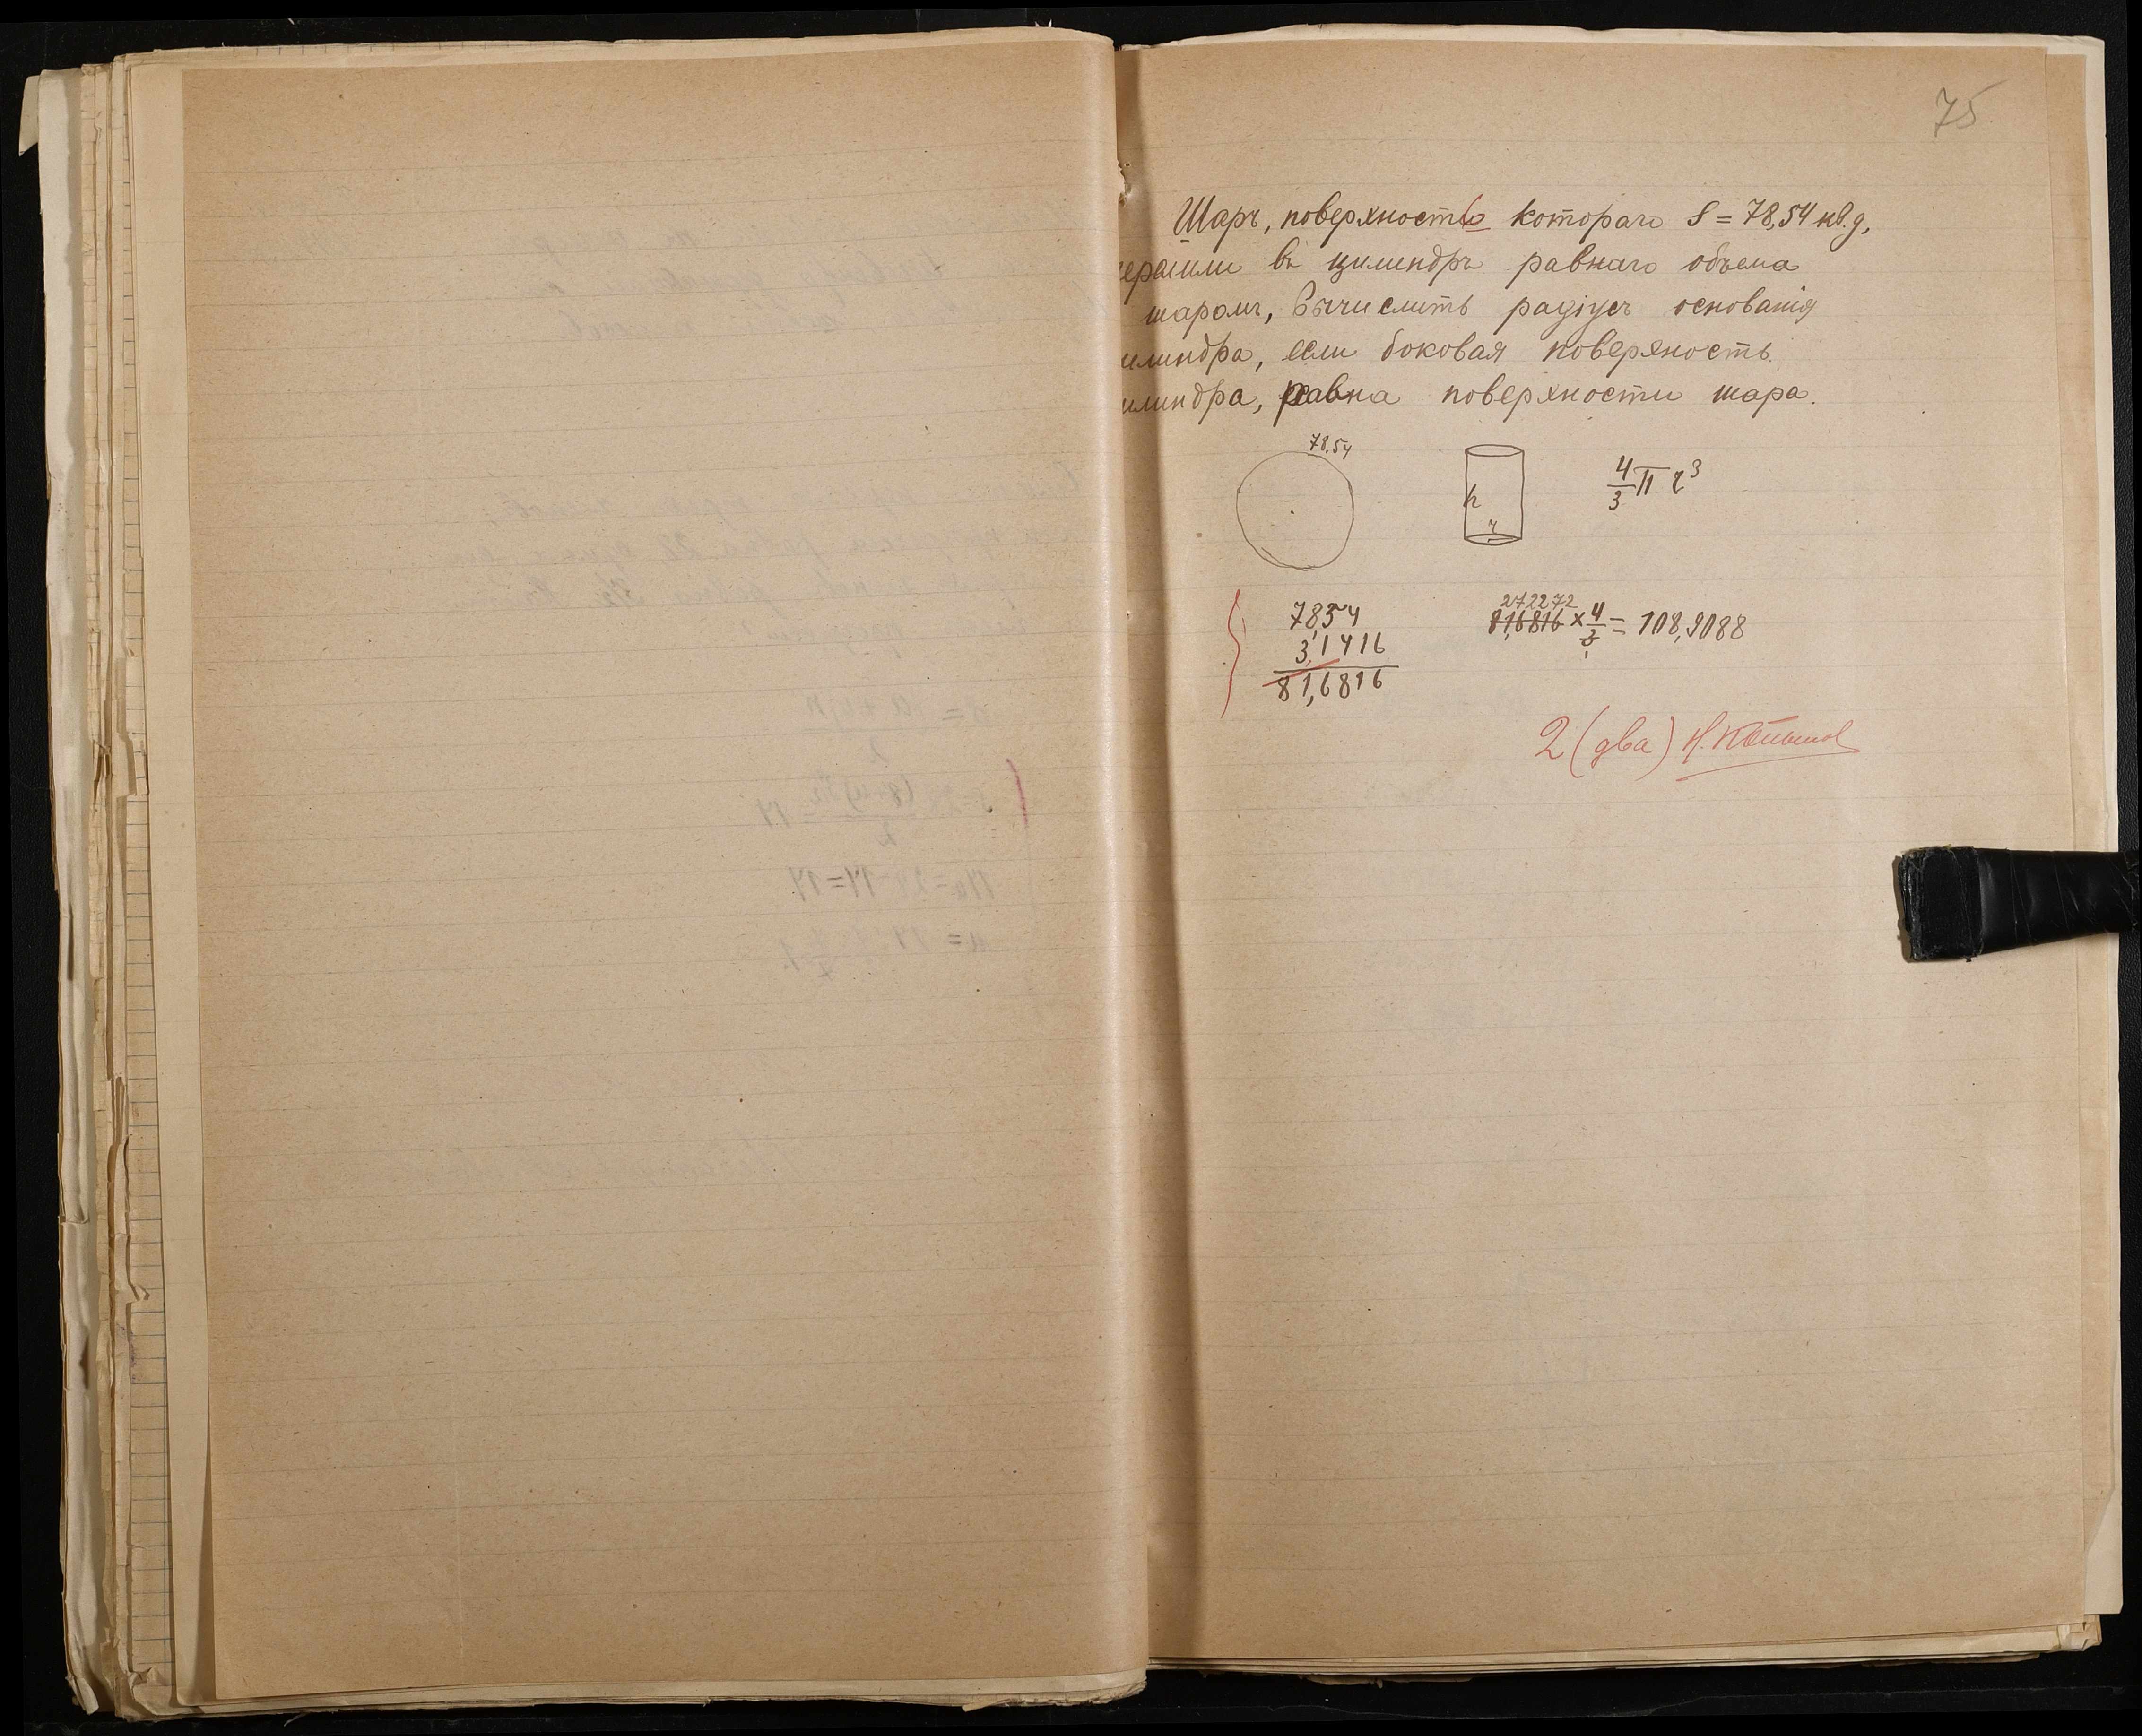 75
Шаръ, поверхность котораго S = 78,54 кв. д,
въ цилиндръ равнаго объема
шаромъ, Вычислить радіусъ основанія
илиндра, если боковая поверхность
илиндра, равна поверхности шара.
78.54
h
r
4/3 π r³
7854
3,1416
81,6816
272272
816816 × 4/3 = 108,9088
2 (два)